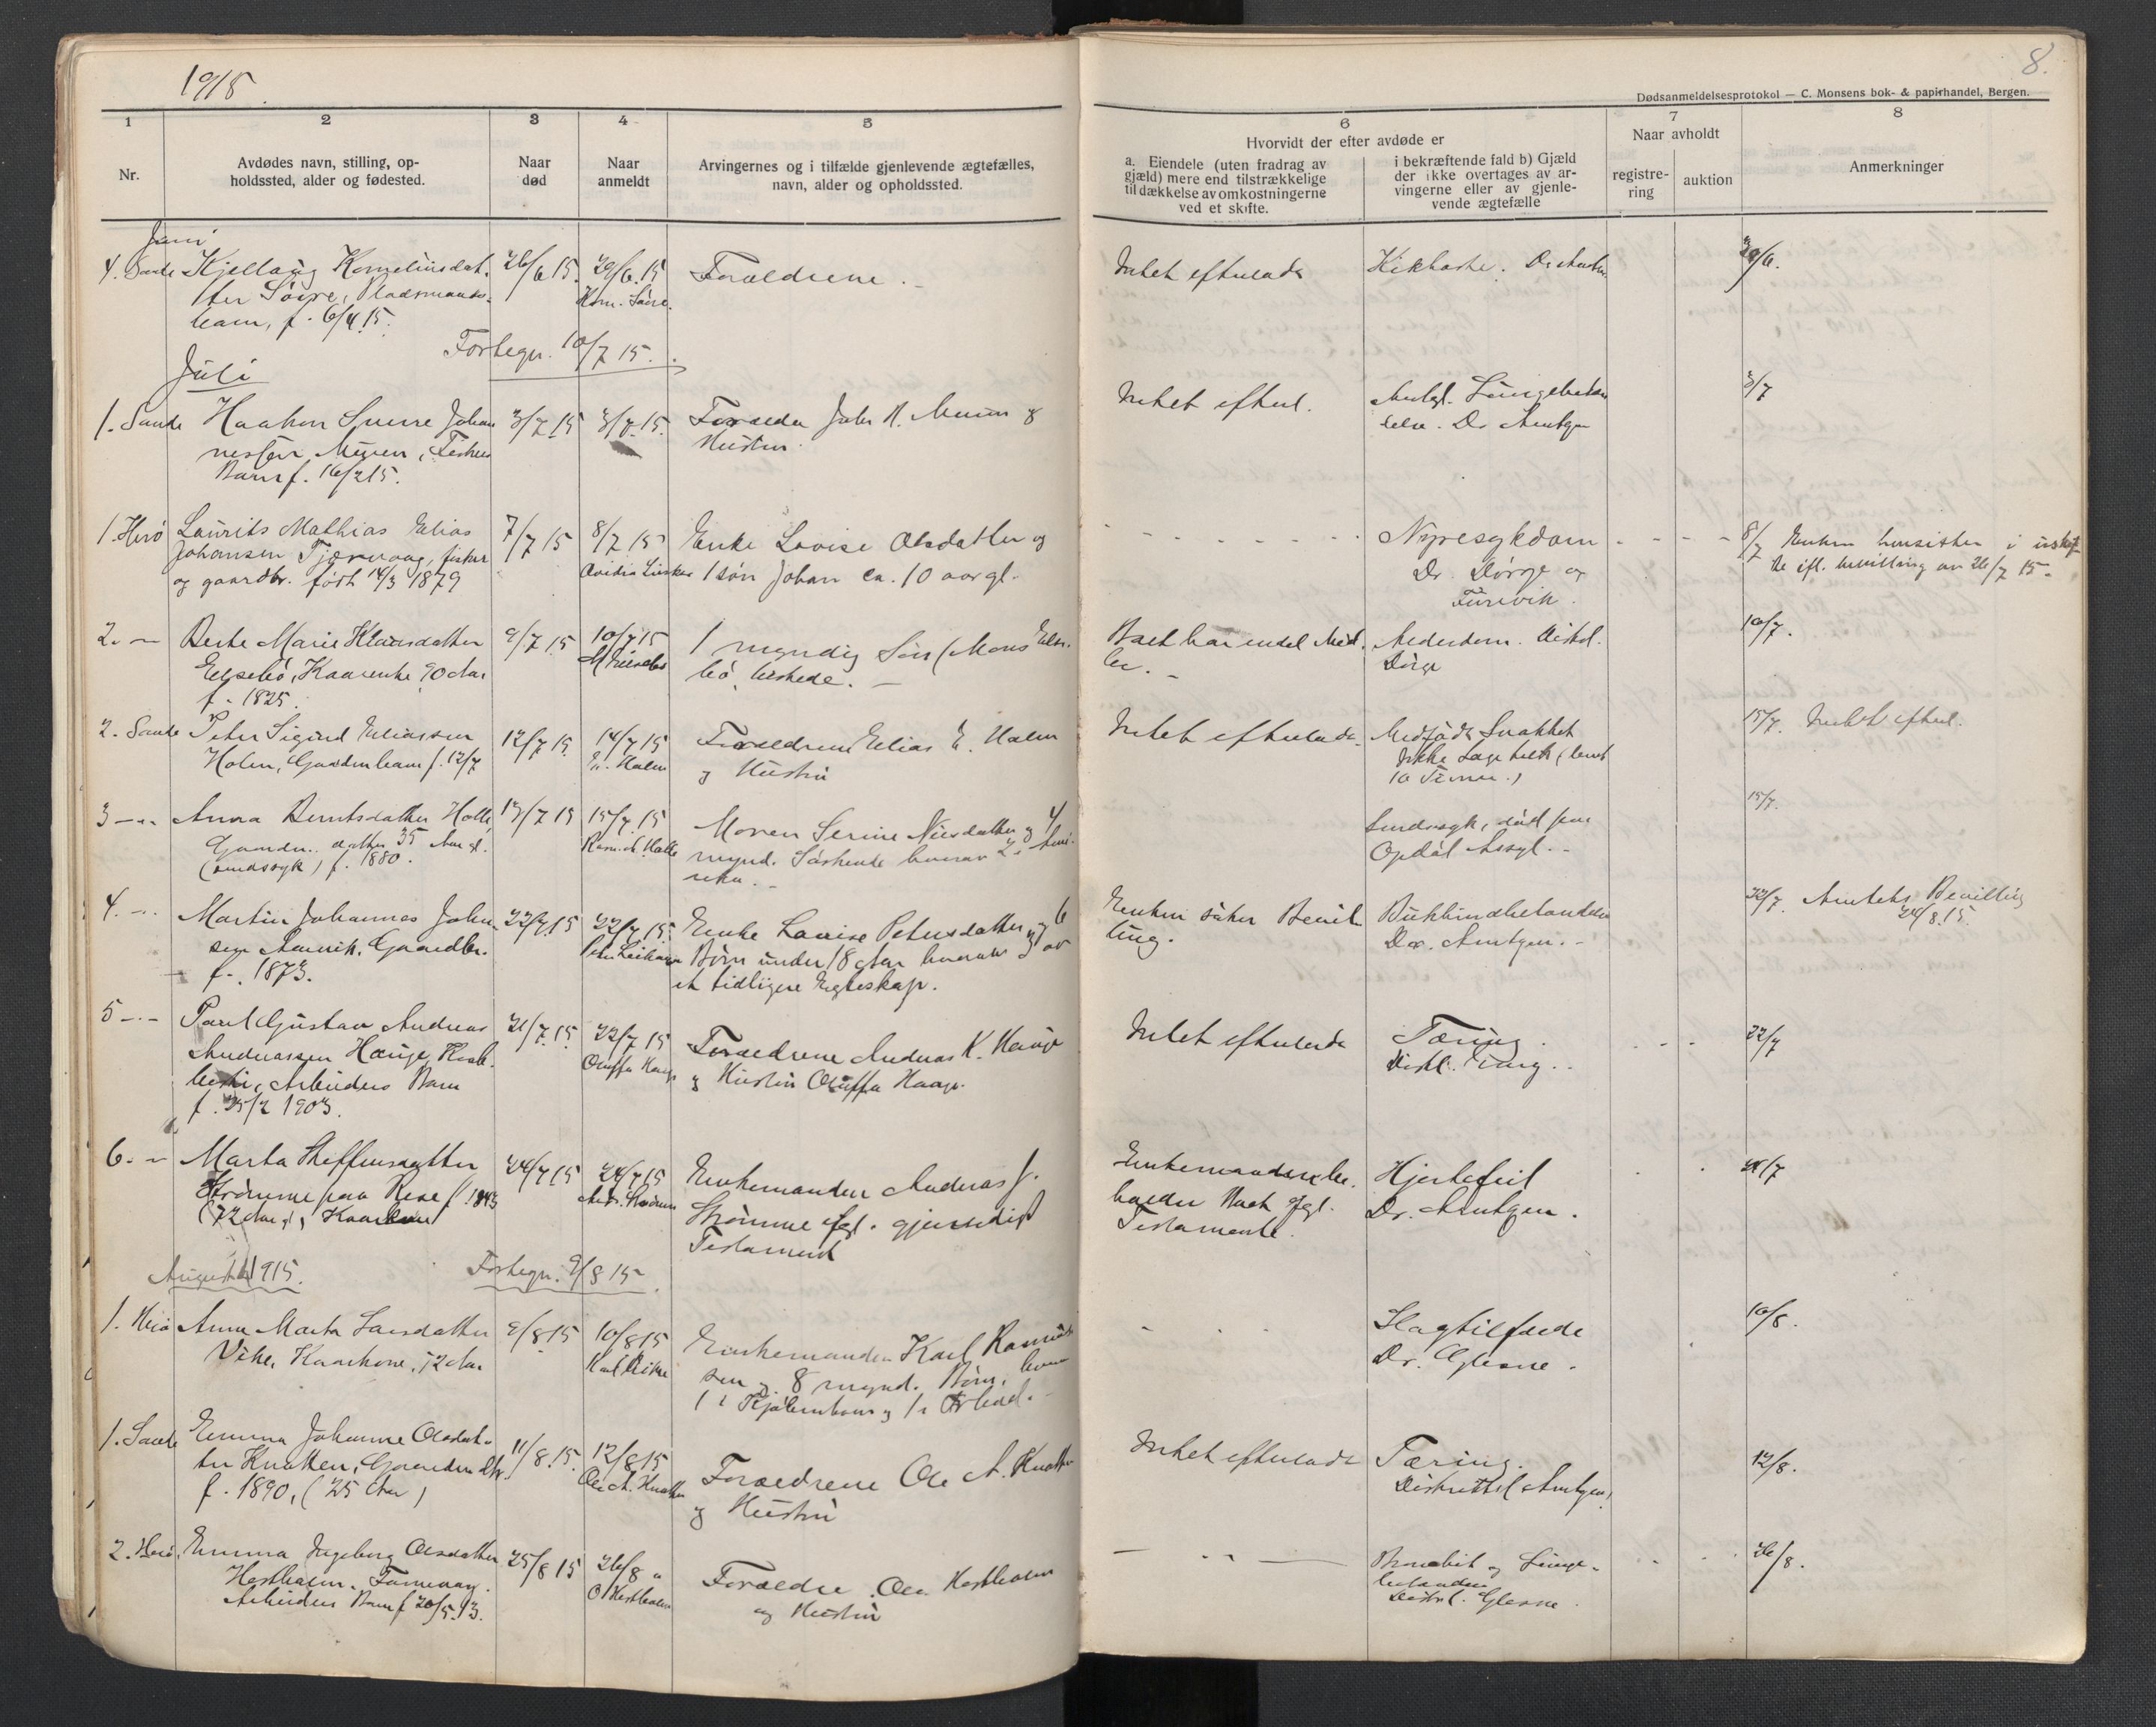 1915
8.
Dødsanmeldelsesprotokol — C. Monsens bok- & papirhandel, Bergen.
1 2 3 4 5 6 7 8
Nr.
Avdødes navn, stilling, op-
holdssted, alder og fødested.
Naar
død
Naar
anmeldt
Arvingernes og i tilfælde gjenlevende ægtefælles,
navn, alder og opholdssted.
Hvorvidt der efter avdøde er
a. Eiendele (uten fradrag av
gjæld) mere end tilstrækkelige
til dækkelse av omkostningerne
ved et skifte.
i bekræftende fald b) Gjæld
der ikke overtages av ar-
vingerne eller av gjenle-
vende ægtefælle
Naar avholdt
registre-
ring
auktion
Anmerkninger
Juni
4. Sande Kjellaug Korneliusdat-
ter Søvre, Pladsmands-
barn, f. 6/4 15.
26/6 15.
29/6 15
Korn. Søvre.
Forældrene.
Intet efterladt
Kikhoste.
29/6.
Fortegn. 10/7 15.
Juli
1. Sande Haakon Sverre Johan
nessen Myren, Fiskers
Barn f. 16/2 15.
3/7 15
3/7 15.
Forældre Johs N. Muren og
Hustru.
Intet efterl.
Lungebetæn
delse. Dr Arntzen
3/7
1. Herø Laurits Mathias Elias
Johansen Tjærvaag, fisker
og gaardbr. født 14/3 1879
7/7 15
8/7 15
Enke Lovise Olsdatter og
1 søn Johan ca. 10 aar gl.
Nyresykdom
Dr. Dørge og
Furevik.
8/7 Enken hensitter i uskif-
te ifl. bevilling av 26/7 15.
2. — Berte Marie Klausdatter
Eggesbø, Kaarenke 90 Aar
f. 1825.
9/7 15
10/7 15
1 myndig Søn (Mons
bø, tilstede.
Boet har endel Mid-
ler.
Alderdom. Distl.
Dørge
10/7.
2. Sande Peter Sigurd Eliassen
Holen, Gaardm. barn f. 12/7
12/7 15.
14/7 15
E. Holen
Forældrene Elias E. Holen
og Hustru
Intet efterladt.
Medfødt Svakhet
Ikke Læge
10 Timer.)
15/7. Intet efterl.
3 — Anna Berntsdatter Holle
Gaardm. datter 35 Aar gl.
(sindssyk) f. 1880.
13/7 15
15/7 15
Moren Serine Nilsdatter og 4
mynd. Søskende hvorav 2 i Ame-
rika.
Sindssyk, død paa
Opdøl Asyl.
15/7.
4. — Martin Johannes Johan-
sen Aarvik, Gaardbr.
f. 1873.
22/7 15
22/7 15
Enke Lovise Petersdatter og 6
Børn under 18 Aar hvorav 3 av
et tidligere Egteskap.
Enken søker Bevil-
ling.
Dr. Arntzen.
22/7. Amtets Bevilling
24/8. 15.
5 — Paul Gustav Andreas
Andreassen Hauge,
Arbeiders Barn
f. 25/2 1903.
21/7. 15.
22/7 15
Oluffa Hauge
Forældrene Andreas K. Hauge
og Hustru Oluffa Hauge.
Intet efterladt
Tæring.
22/7
6. — Marta Steffensdatter
Strømme paa f. 1843
(72 Aar gl.) Kaarkone
24/7 15
24/7 15
Enkemanden Andreas J.
Strømme ifgl. gjensidigt
Testament
Enkemanden be-
holder Boet ifgl.
Testamente.
Hjertefeil
Dr. Arntzen.
24/7
August 1915.
Fortegn. 9/8 15
1. Herø Anne Marta Larsdatter
Vike, Kaarkone, 72 Aar
9/8 15
10/8 15
Karl Vike
Enkemanden Karl Rasmus-
sen og 8 mynd. Børn,
Slagtilfælde
Dr. Glesne.
10/8.
1. Sande Emma Johanne Olsdat-
ter Knotten, Gaardm. dtr.
f. 1890, (25 Aar)
11/8. 15.
12/8 15
Ole A. Knotten
Forældrene Ole A. Knotten
og Hustru
Intet efterladt
Tæring.
Distriktsl. Arntzen
12/8.
2. Herø. Emma Ingeborg Olsdatter
Hestholm.
Arbeiders Barn f 20/5. 13.
25/8 15
26/8 "
O Hestholm
Forældre Ole Hestholm
og Hustru
Bronchit og Lunge-
betændelse
Distrl. Glesne.
26/8.